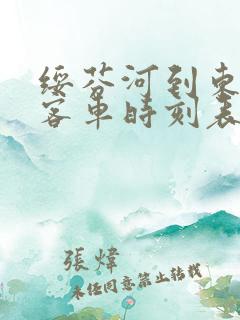 绥芬河到东
客車時刻表
張煒
未经同意禁止转载